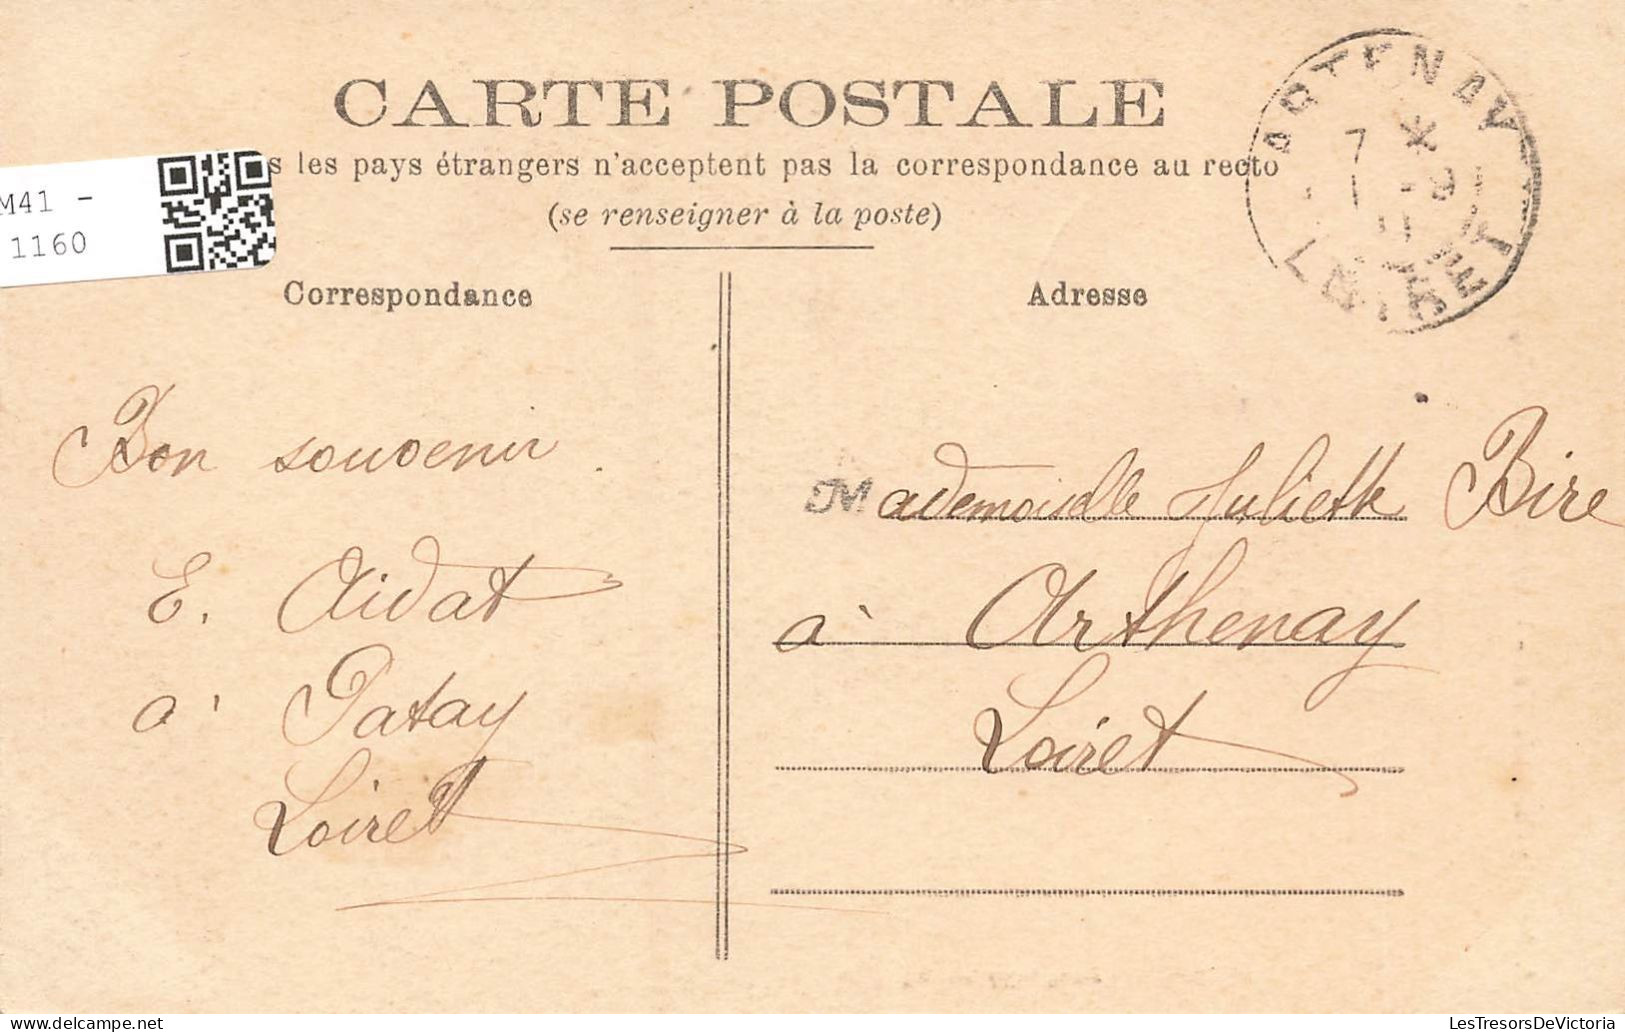 CARTE POSTALE
s les pays étrangers n'acceptent pas la correspondance au recto
(se renseigner à la poste)
M41 -
1160
Correspondance
Adresse
ARTENAY
7 *
LOIRET
Bon souvenir.
E. Aidat
à Patay
Loiret
Mademoiselle Juliette Bire
à Arthenay
Loiret
LesTresorsDeVictoria